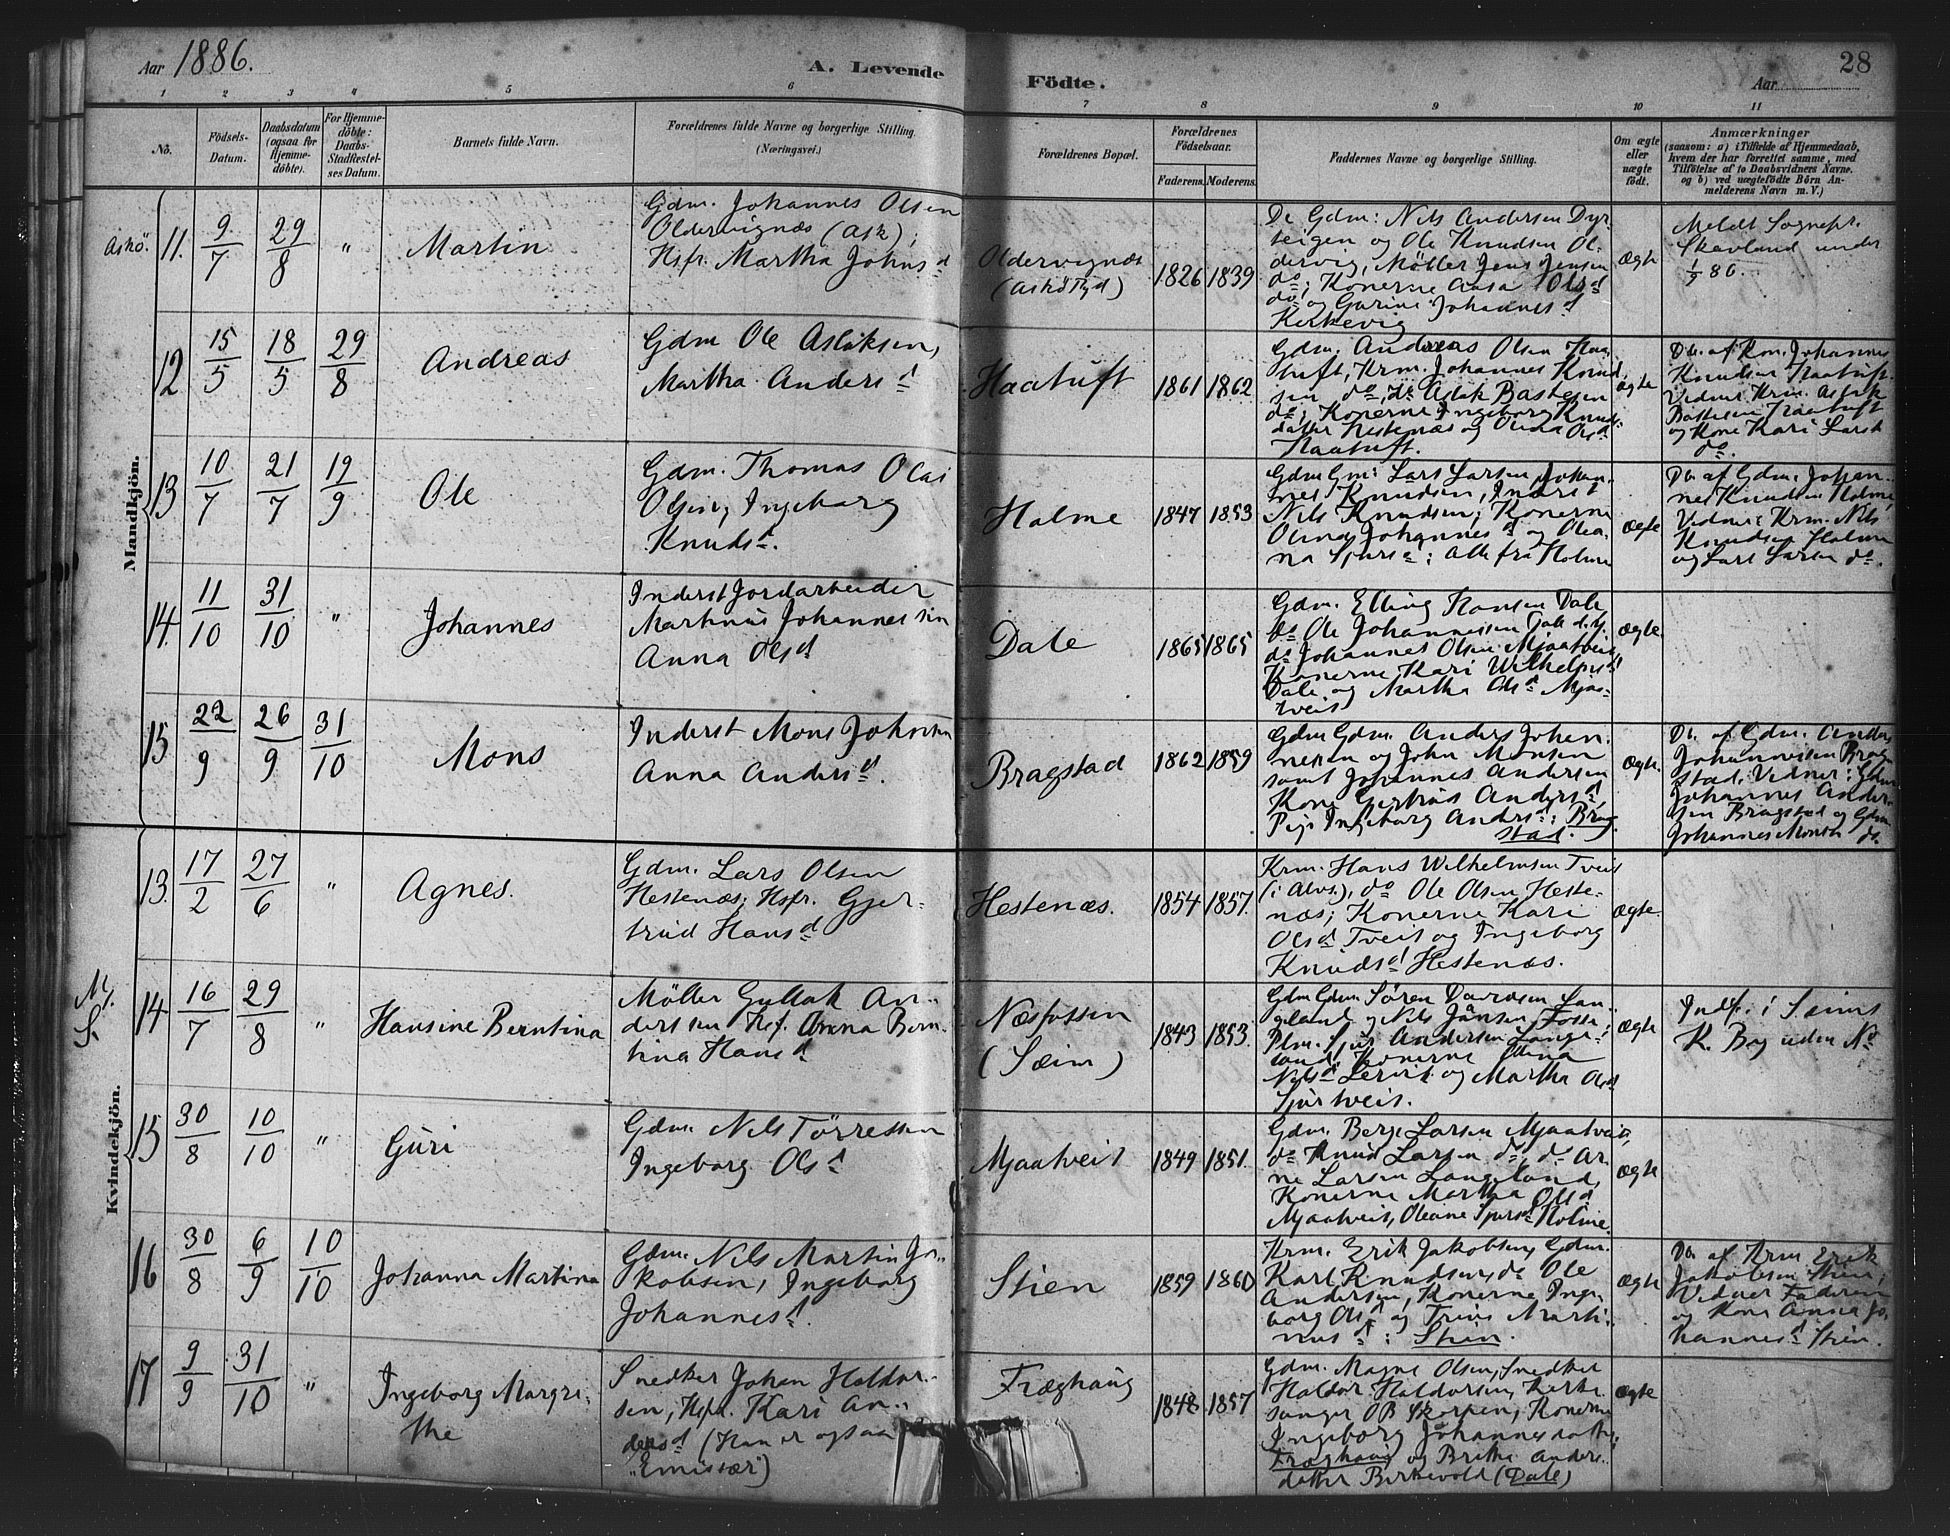 Aar 1886.
A. Levende
Födte.
Aar
28
1 2 3 4 5 6 7 8 9 10 11
No.
Födsels-
Datum.
Daabsdatum
(ogsaa for
Hjemme-
döbte).
For Hjemme-
döbte:
Daabs-
Stadfæstel-
ses Datum.
Barnets fulde Navn.
Forældrenes fulde Navne og borgerlige Stilling.
(Næringsvei.)
Forældrenes Bopæl.
Forældrenes
Födselsaar.
Faderens.
Moderens.
Faddernes Navne og borgerlige Stilling.
Om ægte
eller
uægte
födt.
Anmærkninger
(saasom: a) i Tilfælde af Hjemmedaab,
hvem der har forrettet samme, med
Tilföielse af to Daabsvidners Navne.
og b) ved uægtefödte Börn An-
melderens Navn m. V.)
Mandkjön.
Askö.
11.
9/7
29/8
"
Martin
Gdm. Johannes Olsen
Oldervignæs (Ask);
Hsfr. Martha Johns d
Oldervignæs
1826
1839
De Gdm: Nils Andersen Dyr-
teigen og Ole Knudsen Ol-
dervig, Möller Jens Jensen
do; Konerne Aasa Olsd
do og Gurine Johannesd
Kirkevig
Ægte
Meldt Sognepr.
Skavland under
1/9 86.
12
15/5
18/5
29/8
Andreas
Gdm Ole Aslaksen,
Martha Anders d
Haatuft
1861
1862
Gdm. Andreas Olsen Haa-
tuft, Krm. Johannes Knud-
sen do, do Aslak Bastesen
do; Konerne Ingeborg Knuds-
datter Hestenæs og Olina Olsd
Haatuft.
ægte
Db. af Krm. Johannes
Knudsen Haatuft.
Vidner Krm. Aslak
Bastesen Haatuft
og Kone Kari Larsd
do.
13
10/7
21/7
19/9
Ole
Gdm. Thomas Olai
Olsen, Ingeborg
Knudsd.
Holme
1847
1853
Gdm Gm: Lars Larsen, Johan-
nes Knudsen, Inderst
Nils Knudsen; Konerne
Olina Johannesd og Olea-
na Sjursd; alle fra Holme
ægte
Db. af Gdm. Johan-
nes Knudsen Holme,
Vidner: Krm. Nils
Knudsen Holme
og Lars Larsen do.
14.
11/10
31/10
"
Johannes
Inderst Jordarbeider
Martinus Johannessen
Anna Olsd
Dale
1865
1865
Gdm. Elling Hansen Dale,
do Ole Johannessen Dale
do Johannes Olsen Mjaatveit,
Konerne Kari Wilhelmsd
Dale og Martha Olsd Mjaa-
tveit
ægte.
15
22/9
26/9
31/10
Mons
Inderst Mons Johnsen
Anna Andersd.
Bragstad
1862
1859
Gdm Gdm. Anders Johan-
nesen og John Monsen
samt Johannes Andersen
Kone Gertrud Andersd
Pige Ingeborg Andersd: Brag-
stad.
Ægte.
Db. af Gdm. Anders
Johannessen Brag-
stad. Vidner: Gdm
Johannes Ander-
sen Bragstad og Gdm
Johannes Monsen do.
Kvindekjön.
13.
17/2
27/6
"
Agnes.
Gdm. Lars Olsen
Hestenæs; Hsfr. Gjer-
trud Hans d
Hestenæs.
1854
1857.
Krm. Hans Wilhelmsen Tveit
(i Alvs.), do Ole Olsen Heste-
næs; Konerne Kari
Olsd Tveit og Ingeborg
Knudsd Hestenæs.
Ægte.
14
16/7
29/8
"
Hansine Berntina
Möller Gullak An-
dersen Hsf. Anna Bern-
tina Hans d
Næsfossen
(Sæim)
1843
1853.
Gdm Gdm Sören Davidsen Lan-
geland og Nils Jansen Fosse;
Plm. Sjur Andersen Lange-
land, Konerne Stina
Nilsd Lervik og Martha Olsd
Sjurtveit.
Ægte
Indf. i Seims
K. Bog uden No
15
30/8
10/10
"
Guri
Gdm. Nils Torressen
Ingeborg Ols d
Mjaatveit
1849
1851.
Gdm. Berge Larsen Mjaatveit,
do Knud Larsen do; do Ar-
ne Larsen Langeland,
Konerne Martha Olsd
Mjaatveit, Oleane Sjursd Holme.
Ægte
16
30/8
6/9
10/10
Johanna Martina
Gdm. Nils Martin Ja-
kobsen, Ingeborg
Johannesd.
Stien
1859
1860
Krm. Erik Jakobsen, Gdm.
Karl Knudsen, do Ole
Andersen, Konerne Inge-
borg Olsd og Trine Marti-
nusd: Stien.
Ægte
Db. af Krm Erik
Jakobsen Stien;
Vidner Faderen
og Kone Anna Jo-
hannesd Stien.
17
9/9
31/10
"
Ingeborg Margre-
the
Snedker Johan Haldor-
sen, Hsfr. Kari An-
dersd (Han er ogsaa
"Emissær")
Fræghaug
1848
1857
Gdm. Magne Olsen, Snedker
Haldor Haldorsen, Kirke-
sanger OB Skorpen, Konerne
Ingeborg Johannesdatter
Fræghaug og Britha Anders-
datter Birkevold (Dale)
Ægte